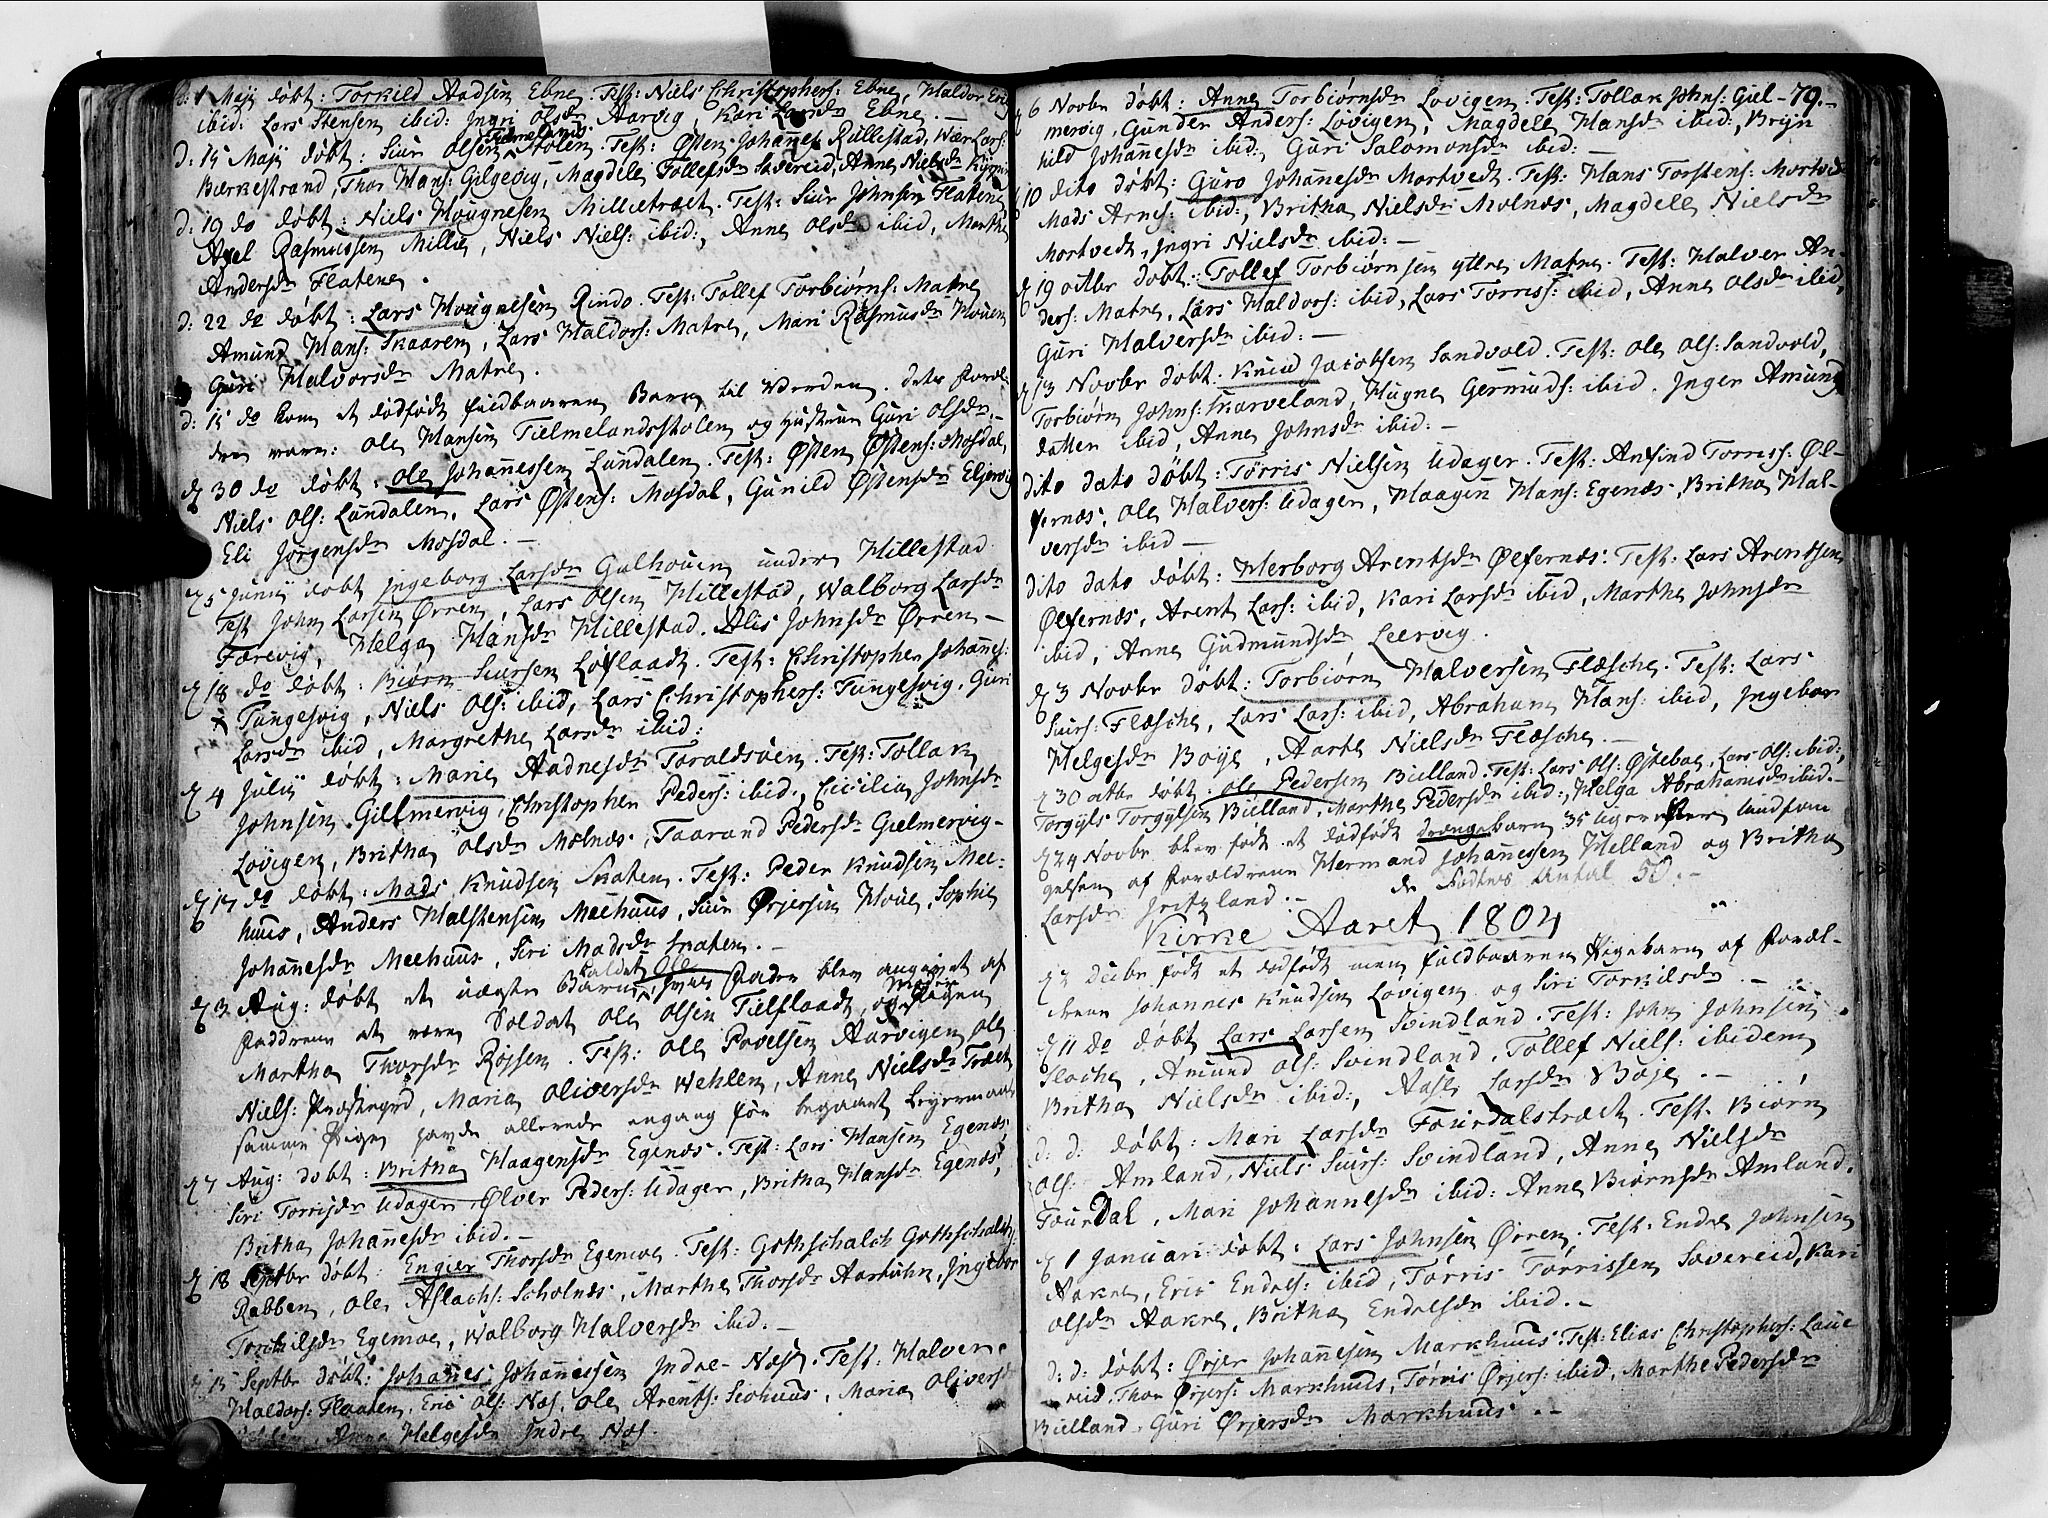 d: 1 Maji døbt: Torkild Aadsen Ebne. Test: Niels Christophers: Ebne, Haldor
ibid: Lars Stensen ibid: Ingri Olsdr Aarvig, Kari Larsdr Ebne. —
d: 15 Maji døbt: Siur Olsen Tielmelands Stolen. Test: Østen Johannes: Rullestad, Lars:
Bærkestrand, Thor Hans: Gilgevig, Magdele Tollefsdr Sævereid, Anne Nielsdr
d: 19 do døbt: Niels Hougnesen Millietræet. Test: Siur Johnsen Flatene
Axel Rasmussen Millie, Niels Niels: ibid:, Anne Olsdr ibid, Marthe
Andersdr Flatene.
d: 22 do døbt: Lars Hougnesen Rindo. Test: Tollef Torbiørns: Matre
Amund Hans: Skaaren, Lars Haldors: Matre, Mari Rasmusdr Houen
Guri Halvorsdr Matre.
d: 15 do kom et dødfødt fuldbaaren Barn til Verden. dets Foræl-
dre vare: Ole Hansen Tielmelandsstolen og Hustrue Guri Olsdr. —
d 30 do døbt: Ole Johannessen Lundalen. Test: Østen Østens: Mosdal,
Niels Ols: Lundalen, Lars Østens: Mosdal, Gunild Østensdr
Eli Jørgensdr Mosdal. —
d 5 Junij døbt Ingeborg Larsdr Galhouen under Hillestad
Test John Larsen Ørren, Lars Olsen Hillestad, Walborg Larsdr
Færevig, Helga Hansdr Hillestad. Alis Johnsdr Ørren —
d 18 do døbt: Biørn Siursen Løflaadt. Test: Christopher Johannes:
Tungesvig, Niels Ols: ibid, Lars Christophers: Tungesvig, Guri
Larsdr ibid, Margrethe Larsdr ibid:
d 4 Julij døbt: Marie Aadnesdr Toraldsøen. Test: Tollak
Johnsen Gillmervig, Christopher Peders: ibid., Cicilia Johnsdr
Lovigen, Britha Olsdr Molnæs, Taarand Pedersdr Gielmervig —
d 17 do døbt: Mads Knudsen Skaten. Test: Peder Knudsen Mee-
huus, Anders Halstensen Meehuus, Siur Ørjersen Houe, Sophie
Johannesdr Meehuus, Siri Madsdr Skaten. —
d 3 Aug: døbt et uægte Barn kaldet Ole, hvis Fader blev angivet af
Fadderne at være Soldat Ole Olsen Tielflaadt, og Moder Pigen
Martha Thorsdr Røssen. Test: Ole Povelsen Aarvigen, Ole
Niels: Præstegrd, Maria Oliversdr Wehlen, Anne Nielsdr Træet
samme Pige havde allerede engang før begaaet Leyermaal
d 7 Aug: døbt: Britha Haagensdr Egenæs. Test: Lars Hansen Egenæs
Siri Torrisdr Udager Ølver Peders: Udager, Britha Hansdr Egenæs,
Britha Johannesdr ibid. —
d 18 Septbr døbt: Engier Thorsdr Egemoe. Test: Gothschalch Gothschalchs:
Rabben, Ole Aslachs: Scholnæs, Marthe Thorsdr, Ingebor
Torkilsdr Egemoe, Walborg Halversdr ibid. —
d 15 Septbr døbt: Johanes Johannessen Indre-Næs. Test: Halver
Haldors: Flaaten, Eric Ols: Næs, Ole Arents: Siohuus, Maria Oliversdr
Anne Helgesdr Indre Næs.
79. —
d 6 Novbr døbt: Anne Torbiørnsdr Lovigen. Test: Tollak Johns: Giel-
mervig, Gunder Anders: Lovigen, Magdele Hansdr ibid:, Bryn
hild Johannesdr ibid:, Guri Salomonsdr ibid: —
d 10 dito døbt: Guro Johannesdr Mortvedt. Test: Hans Torstens: Mortvedt
Mads Arnes: ibid:, Britha Nielsdr Molnæs, Magdele Nielsdr
Mortvedt, Ingri Nielsdr ibid: —
d 19 Octbr døbt: Tollef Torbiørnsen yttre Matre. Test: Halver An-
ders: Matre, Lars Haldors: ibid, Lars Torriss: ibid, Anne Olsdr ibid,
Guri Halversdr ibid: —
d 13 Novbr døbt: Knud Jacobsen Sandvold. Test: Ole Ols: Sandvold,
Torbiørn Johns: Skarveland, Hugne Germunds: ibid. Inger Amunds
datter ibid, Anne Johnsdr ibid: —
dito dato døbt: Torris Nielsen Udager. Test: Ansind Torriss: Øl-
fernæs, Ole Halvers: Udager, Haagen Hans: Egenæs, Britha Hal-
versdr ibid —
dito dato døbt: Herborg Arentsdr Ølfernæs. Test: Lars Arentsen
Ølfernæs, Arent Lars: ibid, Kari Larsdr ibid, Marthe Johnsdr
ibid, Anne Gudmundsdr Leervig.
d 3 Novbr døbt: Torbiørn Halversen Flæsche. Test: Lars
Siurs: Flæsche, Lars Lars: ibid, Abraham Hans: ibid, Ingebor
Helgesdr Boye, Aarte Nielsdr Flæsche. —
d 30 Octbr døbt: Ole Pedersen Bielland. Test: Lars Ols: Østebøe, Lars Ols: ibid;
Torgyls Torgylsen Bielland, Marthe Pedersdr ibid:, Helga Abrahamsdr ibid. —
d 24 Novbr blev født et dødfødt drengebarn 35 Uger efter undfan
gelsen af Forældrene Hermand Johannessen Helland og Britha
Larsdr Fritzland. — de Fødtes Antal 50. —
Kirke Aaret 1804
d 2 Decbr født et dødfødt men fuldbaaren Pigebarn af Foræl-
drene Johannes Knudsen Lovigen og Siri Torkilsdr —
d 11 do døbt Lars Larsen Svindland. Test: John Johnsen
Floche, Amund Ols: Svindland, Tollef Niels: ibidem
Britha Nielsdr ibid:, Aase Larsdr Boje. —
d: d: døbt: Mari Larsdr Fourdalstræet. Test. Biørn
Ols: Amland, Niels Siurs: Svindland, Anne Nielsdr
Fourdal, Mari Johannesdr ibid: Anne Biørnsdr Amland.
d 1 Januari døbt: Lars Johnsen Ørren. Test: Endre Johnsen
Aakre, Eric Endres: ibid, Tørris Tørrissen Sævereid, Kari
Olsdr Aakre, Britha Endresdr ibid. —
d: d: døbt: Ørjer Johannesen Markhuus. Test: Elias Christophers: Laue
reid, Thor Ørjers: Markhuus, Tørris Ørjers: ibid, Marthe Pedersdr
Bielland, Guri Ørjersdr Markhuus. —